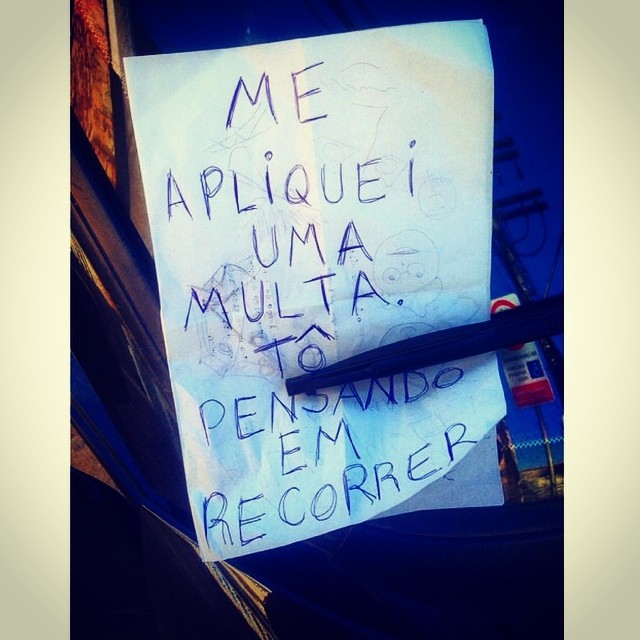 ME
APLIQUEI
UMA
MULTA.
TÔ
PENSANDO
EM
RECORRER